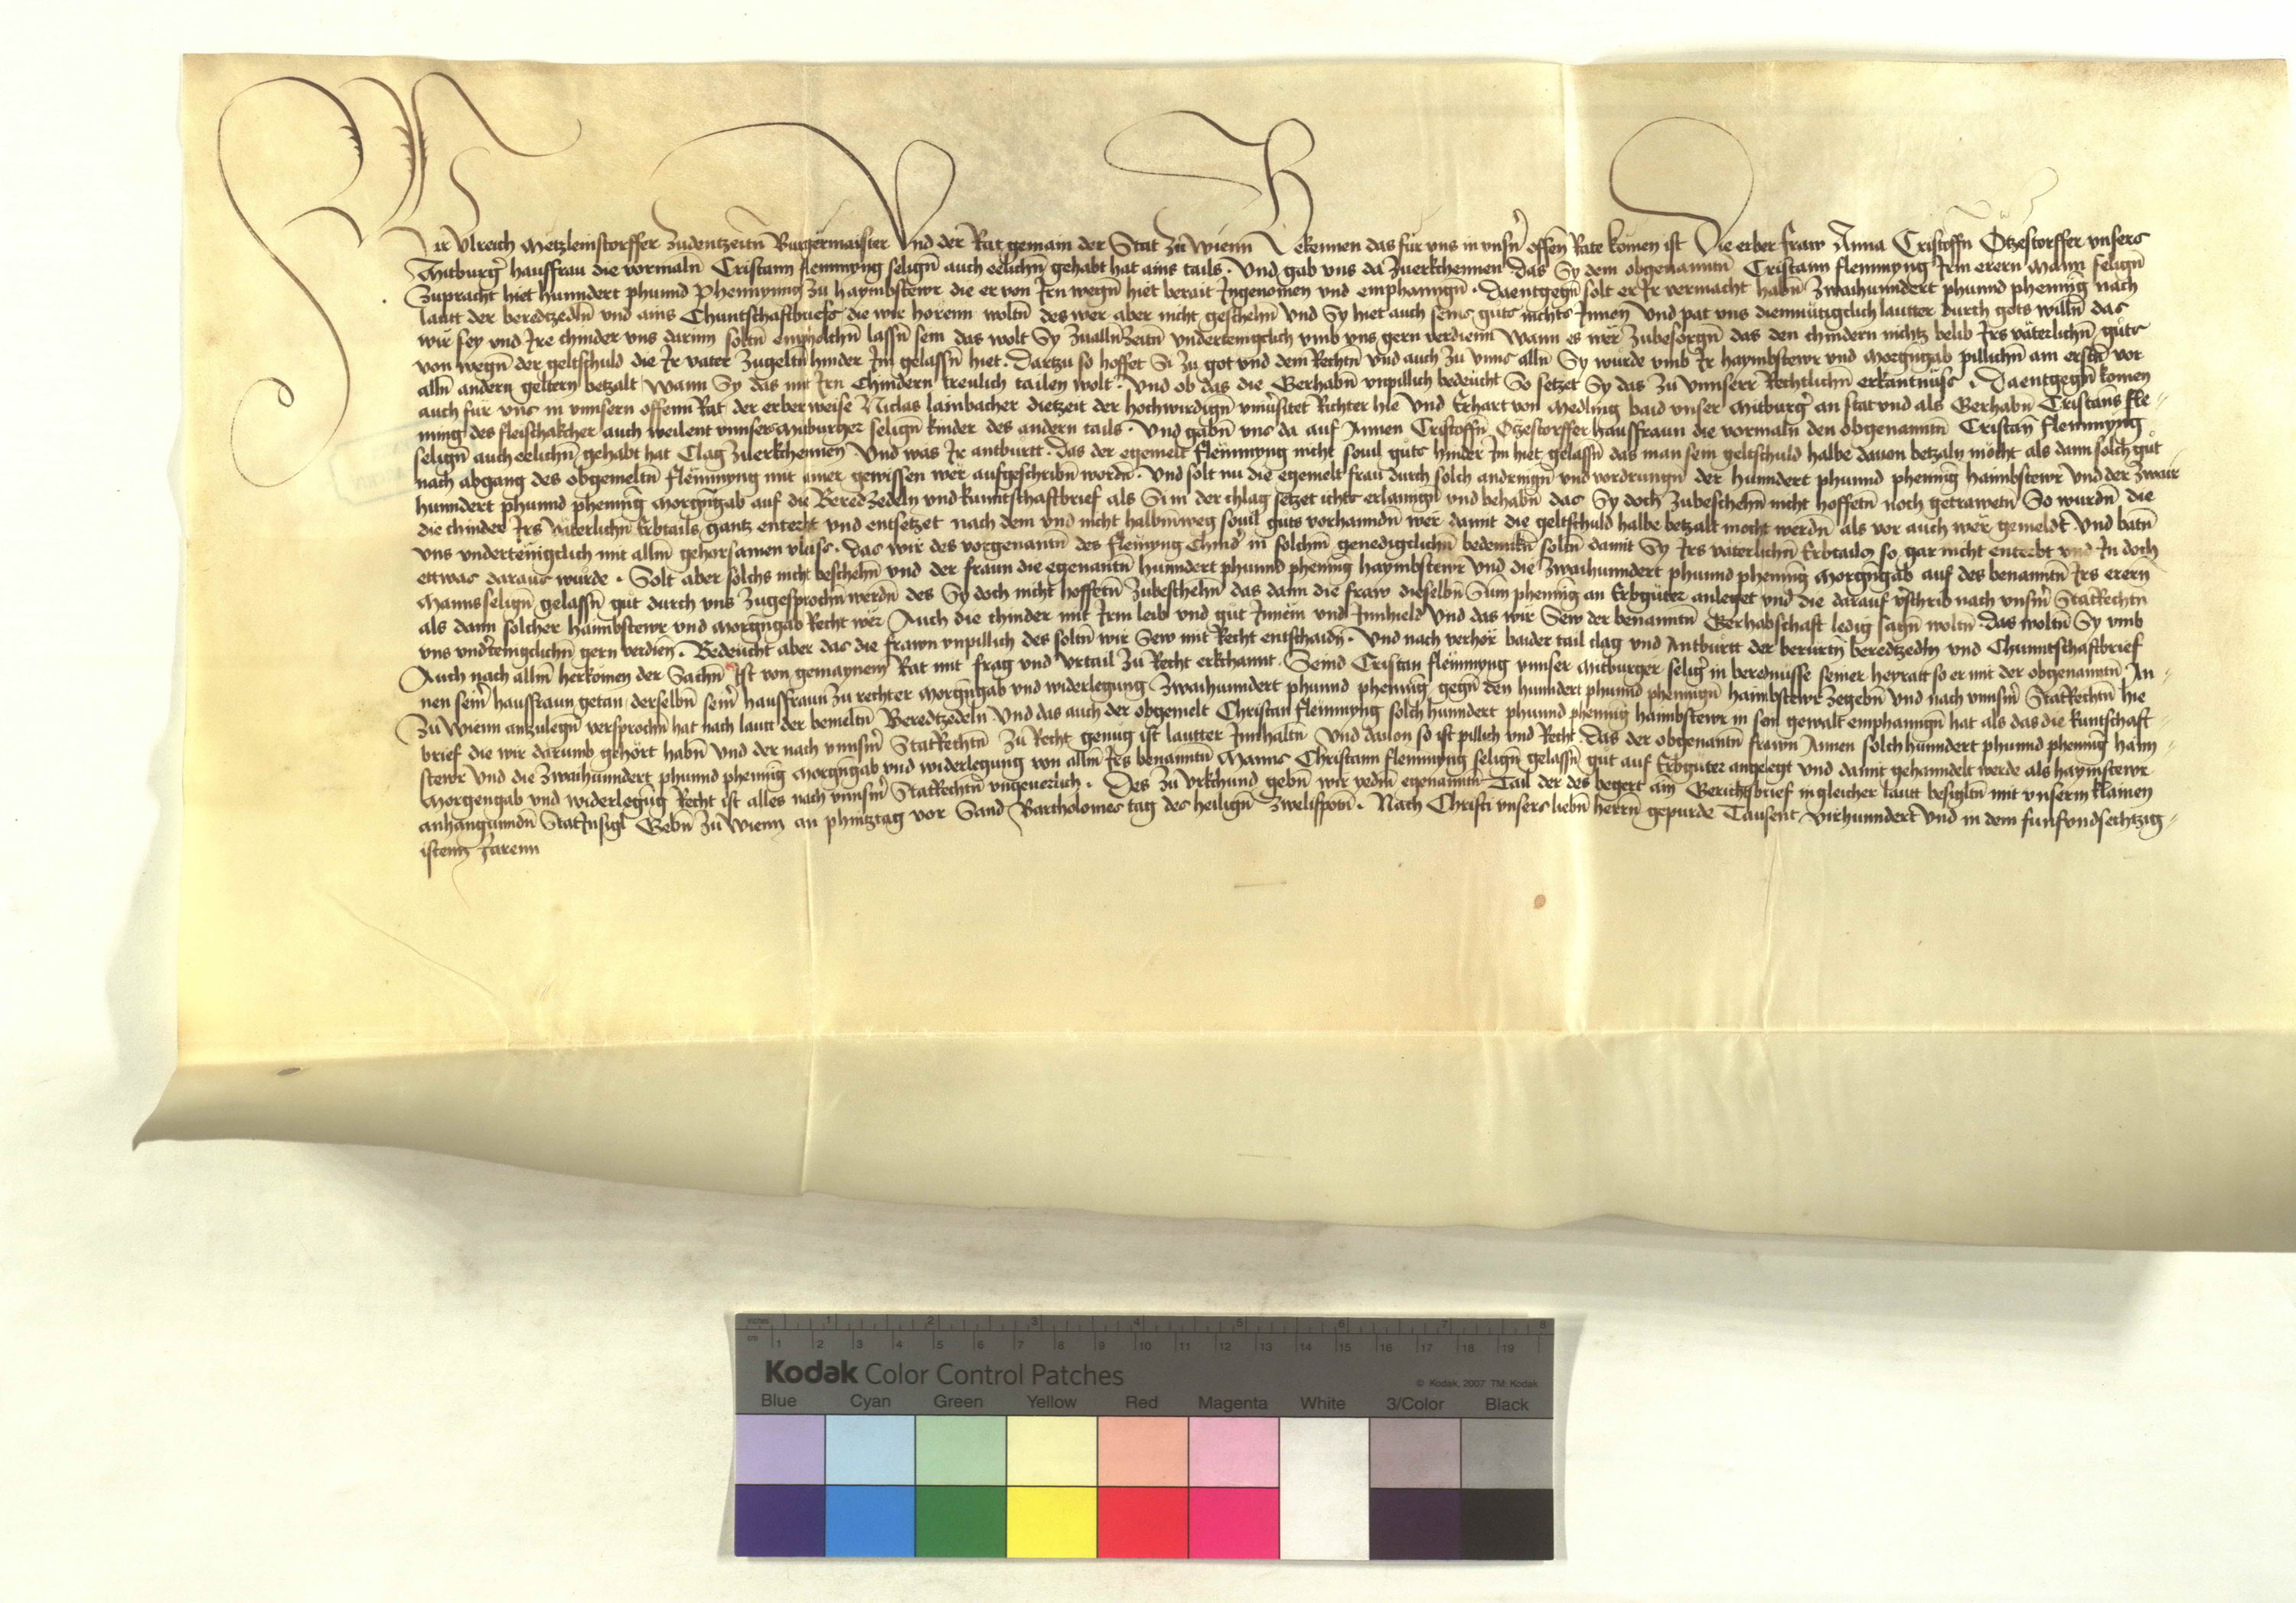 Wir Ulreich Metzleinstorffer zudentzeitn Burgermaister Und der Rat gemain der Stat zu Wienn Bekennen das für uns in unsn̄ offen Rate komen ist Die erber fraw Anna Cristoffn Ötzestorffer unsers
Mitburgˀ hausfrau die vormaln Cristann flemmyng selign̄ auch eelichn̄ gehabt hat ains tails · Und gab uns da zuerkchennen das Sy dem obgenanntn̄ Cristann flemmyng Irm erern Mann selign̄
Zupracht hiet hunndert phunnd Phennynng zu haymbstewr die er von Irn wegn̄ hiet berait Ingenomen und emphanngn̄ · Daentgegn̄ solt er Ir vermacht habn̄ Zwaihunndert phunnd phening nach
lautt der beredtzedln̄ und ains Chuntschaftbriefs die wir horenn woltn̄ des wer aber nicht geschehn̄ Und Sy hiet auch seins guts nichts Innen Und pat uns diemutigclich lautter durch gots willn̄ das
wir sey und Ire chinder uns darinn soltn̄ empholchn̄ lassn̄ sein das wolt Sy zu alln̄ Zeitn̄ undertenigclich umb uns gern verdienn Wann es wer zubesorgn̄ das den chindern nichtz belib Irs väterlichn̄ guts
von wegn̄ der geltschuld die Ir vater Zugeltn̄ hinder Im gelassn̄ hiet · Dartzu so hoffet Si zu got und dem Rechtn̄ und auch zu unns alln̄ Sy wurde umb Ir haymbstewr und Morgngab pillichn̄ am erstn̄ vor
alln̄ andern geltern betzalt Wann Sy das mit Irn Chindern treulich tailen wolt · Und ob das die Gerhabn̄ unpillich bedeucht So setzet Sy das zu unnserr Rechtlichn̄ erkantnüss · Daentgegn̄ komen
auch für uns in unnsern offenn Rat der erber weise Niclas lainbacher dietzeit der hochwirdign̄ univˀsitet Richter hie Und Erhart von Medling baid unser Mitburgˀ an stat und als Gerhabn̄ Cristans fle=
ming des fleischakcher auch weilent unnsers Mitburger selign̄ kinder des andern tails · Und gabn̄ uns da auf Annen Cristoffn̄ Ötzestorffer hausfraun die vormaln den obgenanntn̄ Cristan̄ flemmyng
selign̄ auch eelichn̄ gehabt hat Clag zuerkchennen Und was Ir antburtt · das der egemelt flemmyng nicht souil guts hinder Im hiet gelassn̄ das man sein geltschuld halbe dauon betzaln möcht als dann solch gut
nach abgang des obgemeltn̄ flemmyng mit ainer gewissen wer aufgeschribn̄ wordn̄ · Und solt nu die egemelt frau durch solch andringn̄ und vordrungn̄ der hunndert phunnd phening haimbstewr Und der Zwair
hunndert phunnd phening Morgngab auf die Bered Zedeln und kunntschaftbrief als Si in der chlag setzet ichts erlanngn̄ und behabn̄ das Sy doch zubeschehn̄ nicht hoffetn̄ noch getrawetn̄ So wurdn̄ die
die chinder Irs väterlichn̄ Erbtails gantz enterbt und entsetzet nach dem und nicht halbinweg souil guts vorhanndn̄ wer damit die geltschuld halbe betzalt mocht werdn̄ als vor auch wer gemeldt Und batn̄
uns undertenigclich mit allm̄ gehorsamen vleiss · das wir des vorgenantn̄ des flemyng Chindˀ in solchm̄ genedigclichn̄ bedenckn̄ soltn̄ damit Sy Irs väterlichn̄ Erbtails so gar nicht enterbt und In doch
ettwas daraus wurde · Solt aber solchs nicht beschehn̄ und der fraun die egenantn̄ hunndert phunnd phening haymbstewr Und die Zwaihunndert phunnd phening Morgngab auf des benanntn̄ Irs erern
Manns selign̄ gelassn̄ gut durch uns Zugesprochn̄ werdn̄ des Sy doch nicht hofftn̄ zubeschehn̄ das dann die fraw dieselbn̄ Sum phening an Erbgüter anleget und die darauf vˀschrib nach unsm̄ StatRechtn̄
als dann solcher haimbstewr und Morgngab Recht wer Auch die chinder mit Irm leib und gut Innein und Innhield Und das wir Sew der benanntn̄ Gerhabschaft ledig sagn̄ woltn̄ · Das woltn̄ Sy umb
uns undˀtenigclichn̄ gern verdien̄ · Bedeucht aber das die frawn unpillich des soltn̄ wir Sew mit Recht entschaidn̄ · Und nach verhör baider tail clag und Antburtt der berurtn̄ beredtzedln̄ und Chunntschaftbrief
Auch nach allm̄ herkomen der Sachn̄ Ist von gemaynem Rat mit frag und Urtail zu Recht erkchannt · Seind Cristan flemmyng unnser Mitburger seligˀ in berednüsse seiner heyratt so er mit der obgenanntn̄ An=
nen seinˀ hausfraun getan / derselbn̄ seinˀ hausfraun zu rechter Morgngab und widerlegung Zwaihunndert phunnd phening gegn̄ den hunndert phunnd phenning haimbstewr Zegebn̄ Und nach unnsm̄ StatRechtn̄ hie
Zu Wienn anzulegn̄ versprochn̄ hat nach lautt der bemeltn̄ Beredtzedeln Und das auch der obgemelt Christan flemmyng solch hunndert phunnd phening haimbstewr in sein gewalt emphanngn̄ hat als das die kuntschaft=
brief die wir darumb gehört habn̄ Und der nach unnsm̄ StatRechtn̄ zu Recht genug ist lautter Innhaltn̄ Und dauon so ist pillich und Recht Das der obgenantn̄ frawn Annen solch hunndert phunnd phening haim=
stewr Und die Zwaihunndert phunnd phening Morgngab und widerlegung von allm̄ Irs benanntn̄ Manns Christann flemmyng selign̄ gelassn̄ gut auf Erbgüter angelegt und damit gehanndelt werde als haymstewr
Morgengab und widerlegung Recht ist alles nach unnsm̄ StatRechtn̄ ungeuerlich · Des zu Urkchund gebn̄ wir yedm̄ egenanntn̄ Tail der des begert ain Gerichtsbrief in gleicher lautt besigltn̄ mit unserm klainen
anhangunndn̄ StatInsigl Gebn̄ zu Wienn an phintztag vor Sand Bartholomes tag des heilign̄ Zwelifpotn̄ · Nach Christi unsers liebn̄ herrn̄ gepurde Tausent virhunndert Und in dem funfundsechtzig=
istenn Jarenn
Kodak Color Control Patches
© Kodak, 2007 TM: Kodak
Blue Cyan Green Yellow Red Magenta White 3/Color Black